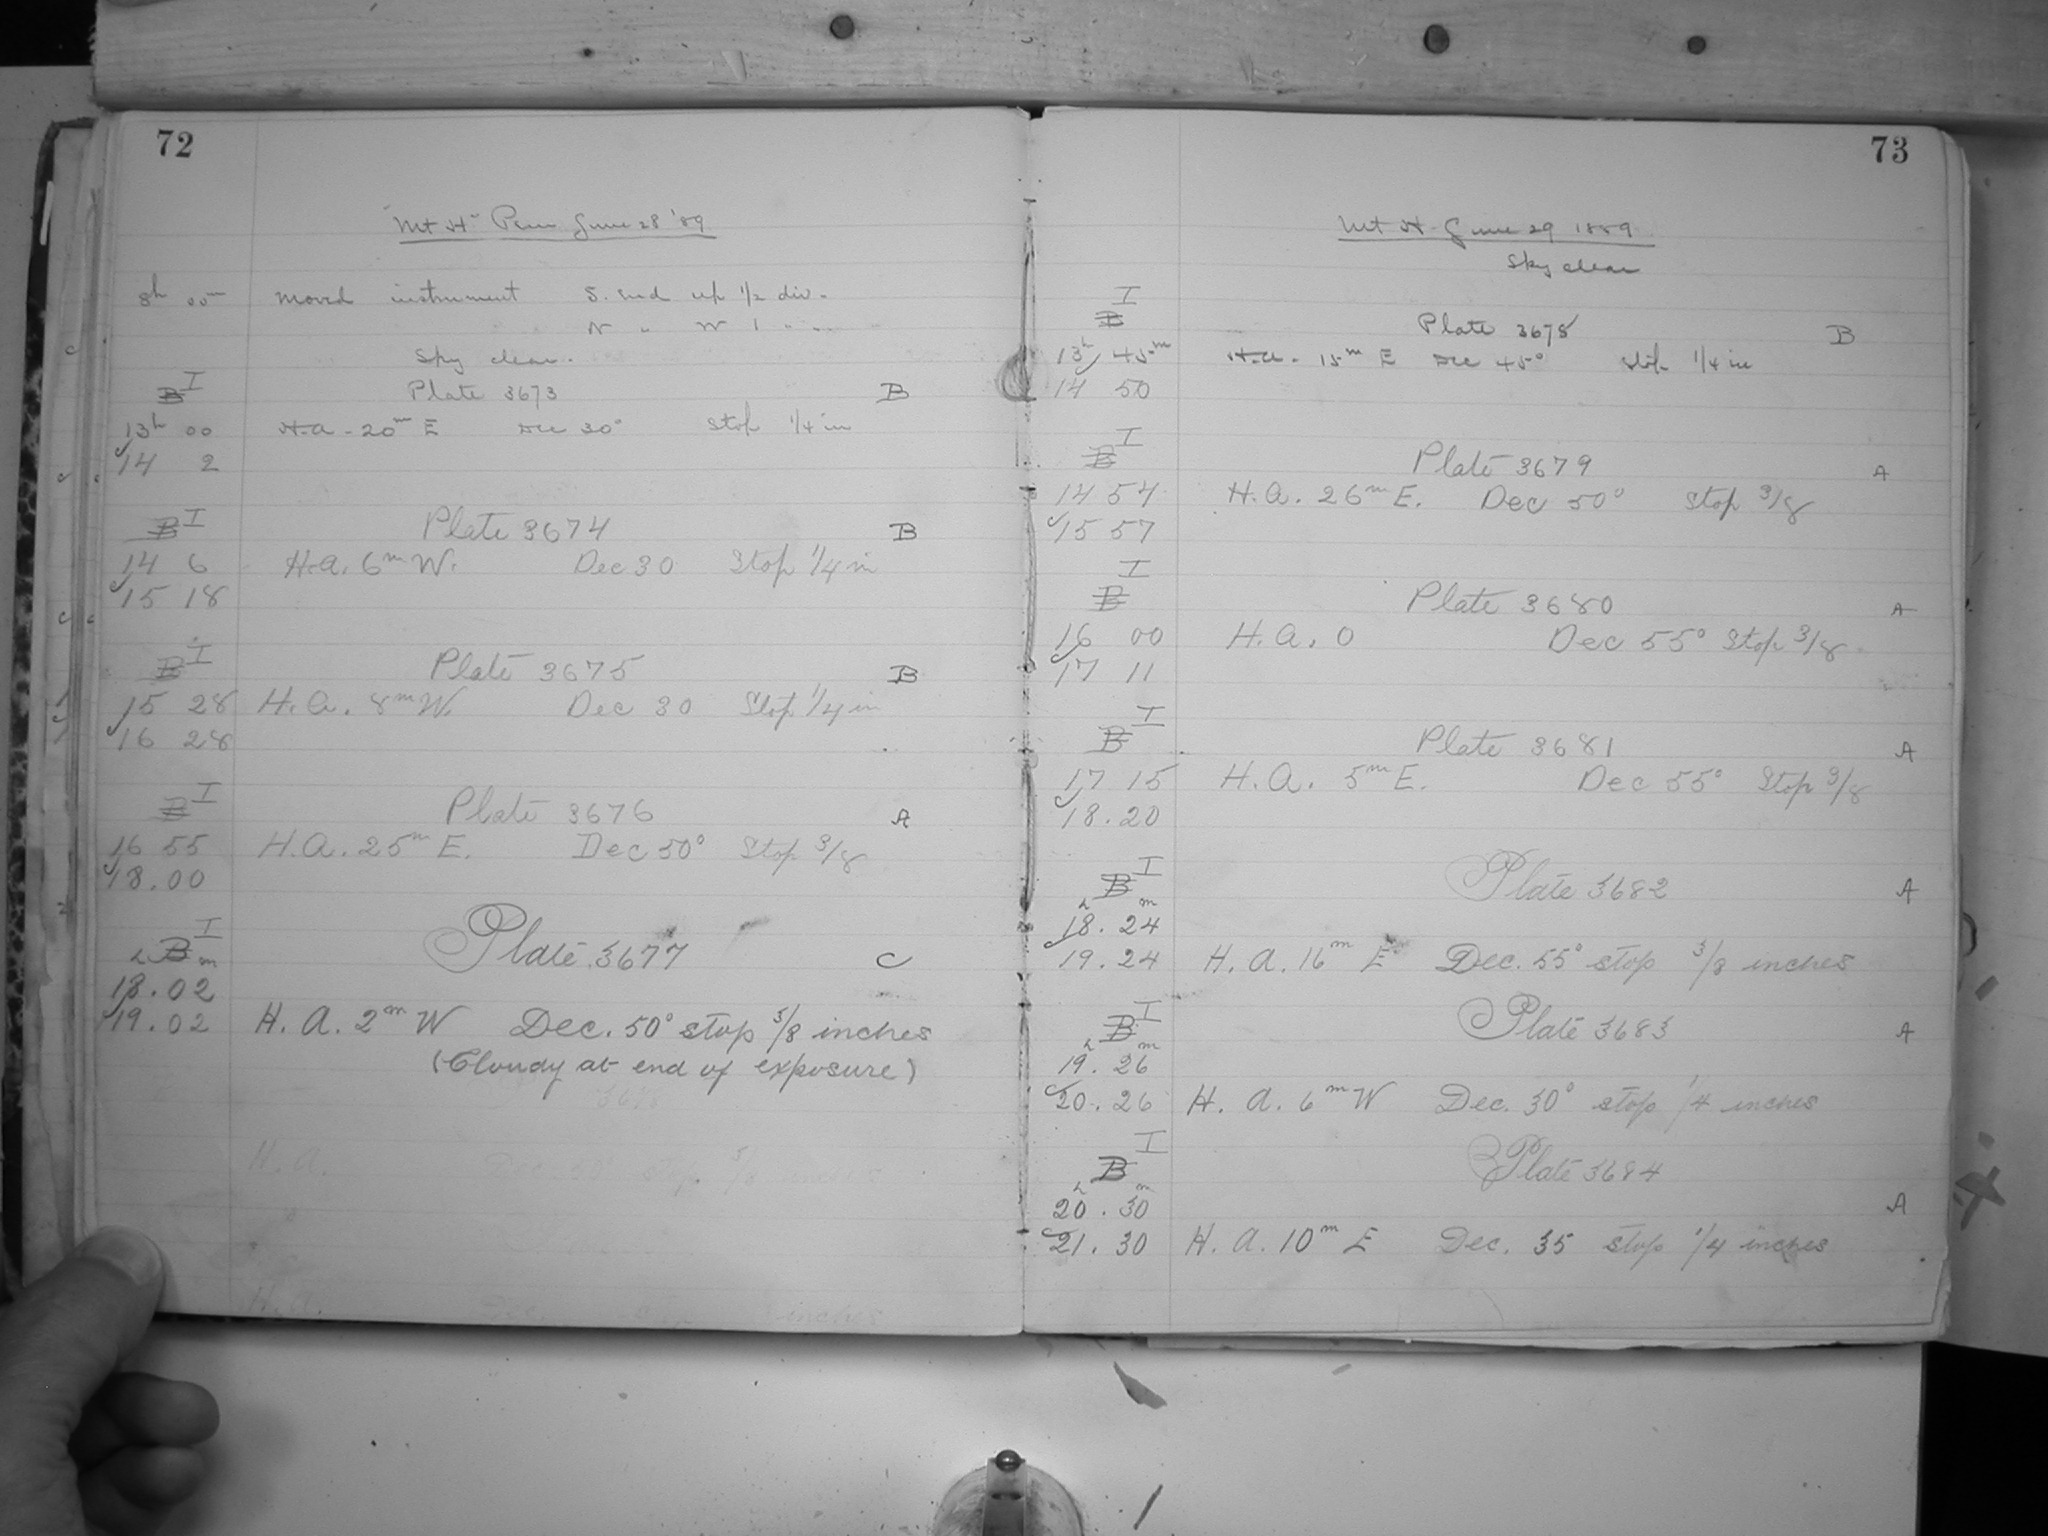 72
Mt H Peru June 28 '89
8h 00m moved instrument S. end up 1/2 div.
N " W 1 " "
Sky clear.
B I
Plate 3673 B
13h 00 H.A. 20m E Dec 30° Stop 1/4 in
14 2
B I
Plate 3674 B
14 6 H.A. 6m W. Dec 30 Stop 1/4 in
15 18
B I
Plate 3675 B
15 28 H.A. 8m W. Dec 30 Stop 1/4 in
16 28
B I
Plate 3676 A
16 55 H.A. 25m E. Dec 50° Stop 3/8
18.00
B I
Plate 3677 C
h m
18.02
19.02 H. A. 2m W Dec. 50° stop 3/8 inches
(Cloudy at end of exposure)
3678
H. A. Dec. 50° stop 3/8 inches
H. A. Dec. stop inches
73
Mt H June 29 1889
Sky clear
I
B
Plate 3678 B
13h 45m H.A. 15m E Dec 45° stop 1/4 in
14 50
I
B
Plate 3679 A
14 54 H.A. 26m E. Dec 50° Stop 3/8
15 57
I
B
Plate 3680 A
16 00 H.A. 0 Dec 55° Stop 3/8
17 11
I
B
Plate 3681 A
17 15 H.A. 5m E. Dec 55° Stop 3/8
18.20
I
B
Plate 3682 A
h m
18.24
19.24 H. A. 16m E Dec. 55° stop 3/8 inches
I
B
Plate 3683 A
h m
19.26
20.26 H. A. 6m W Dec. 30° stop 1/4 inches
I
B
Plate 3684
h m
20.30 A
21.30 H. A. 10m E Dec. 35 stop 1/4 inches